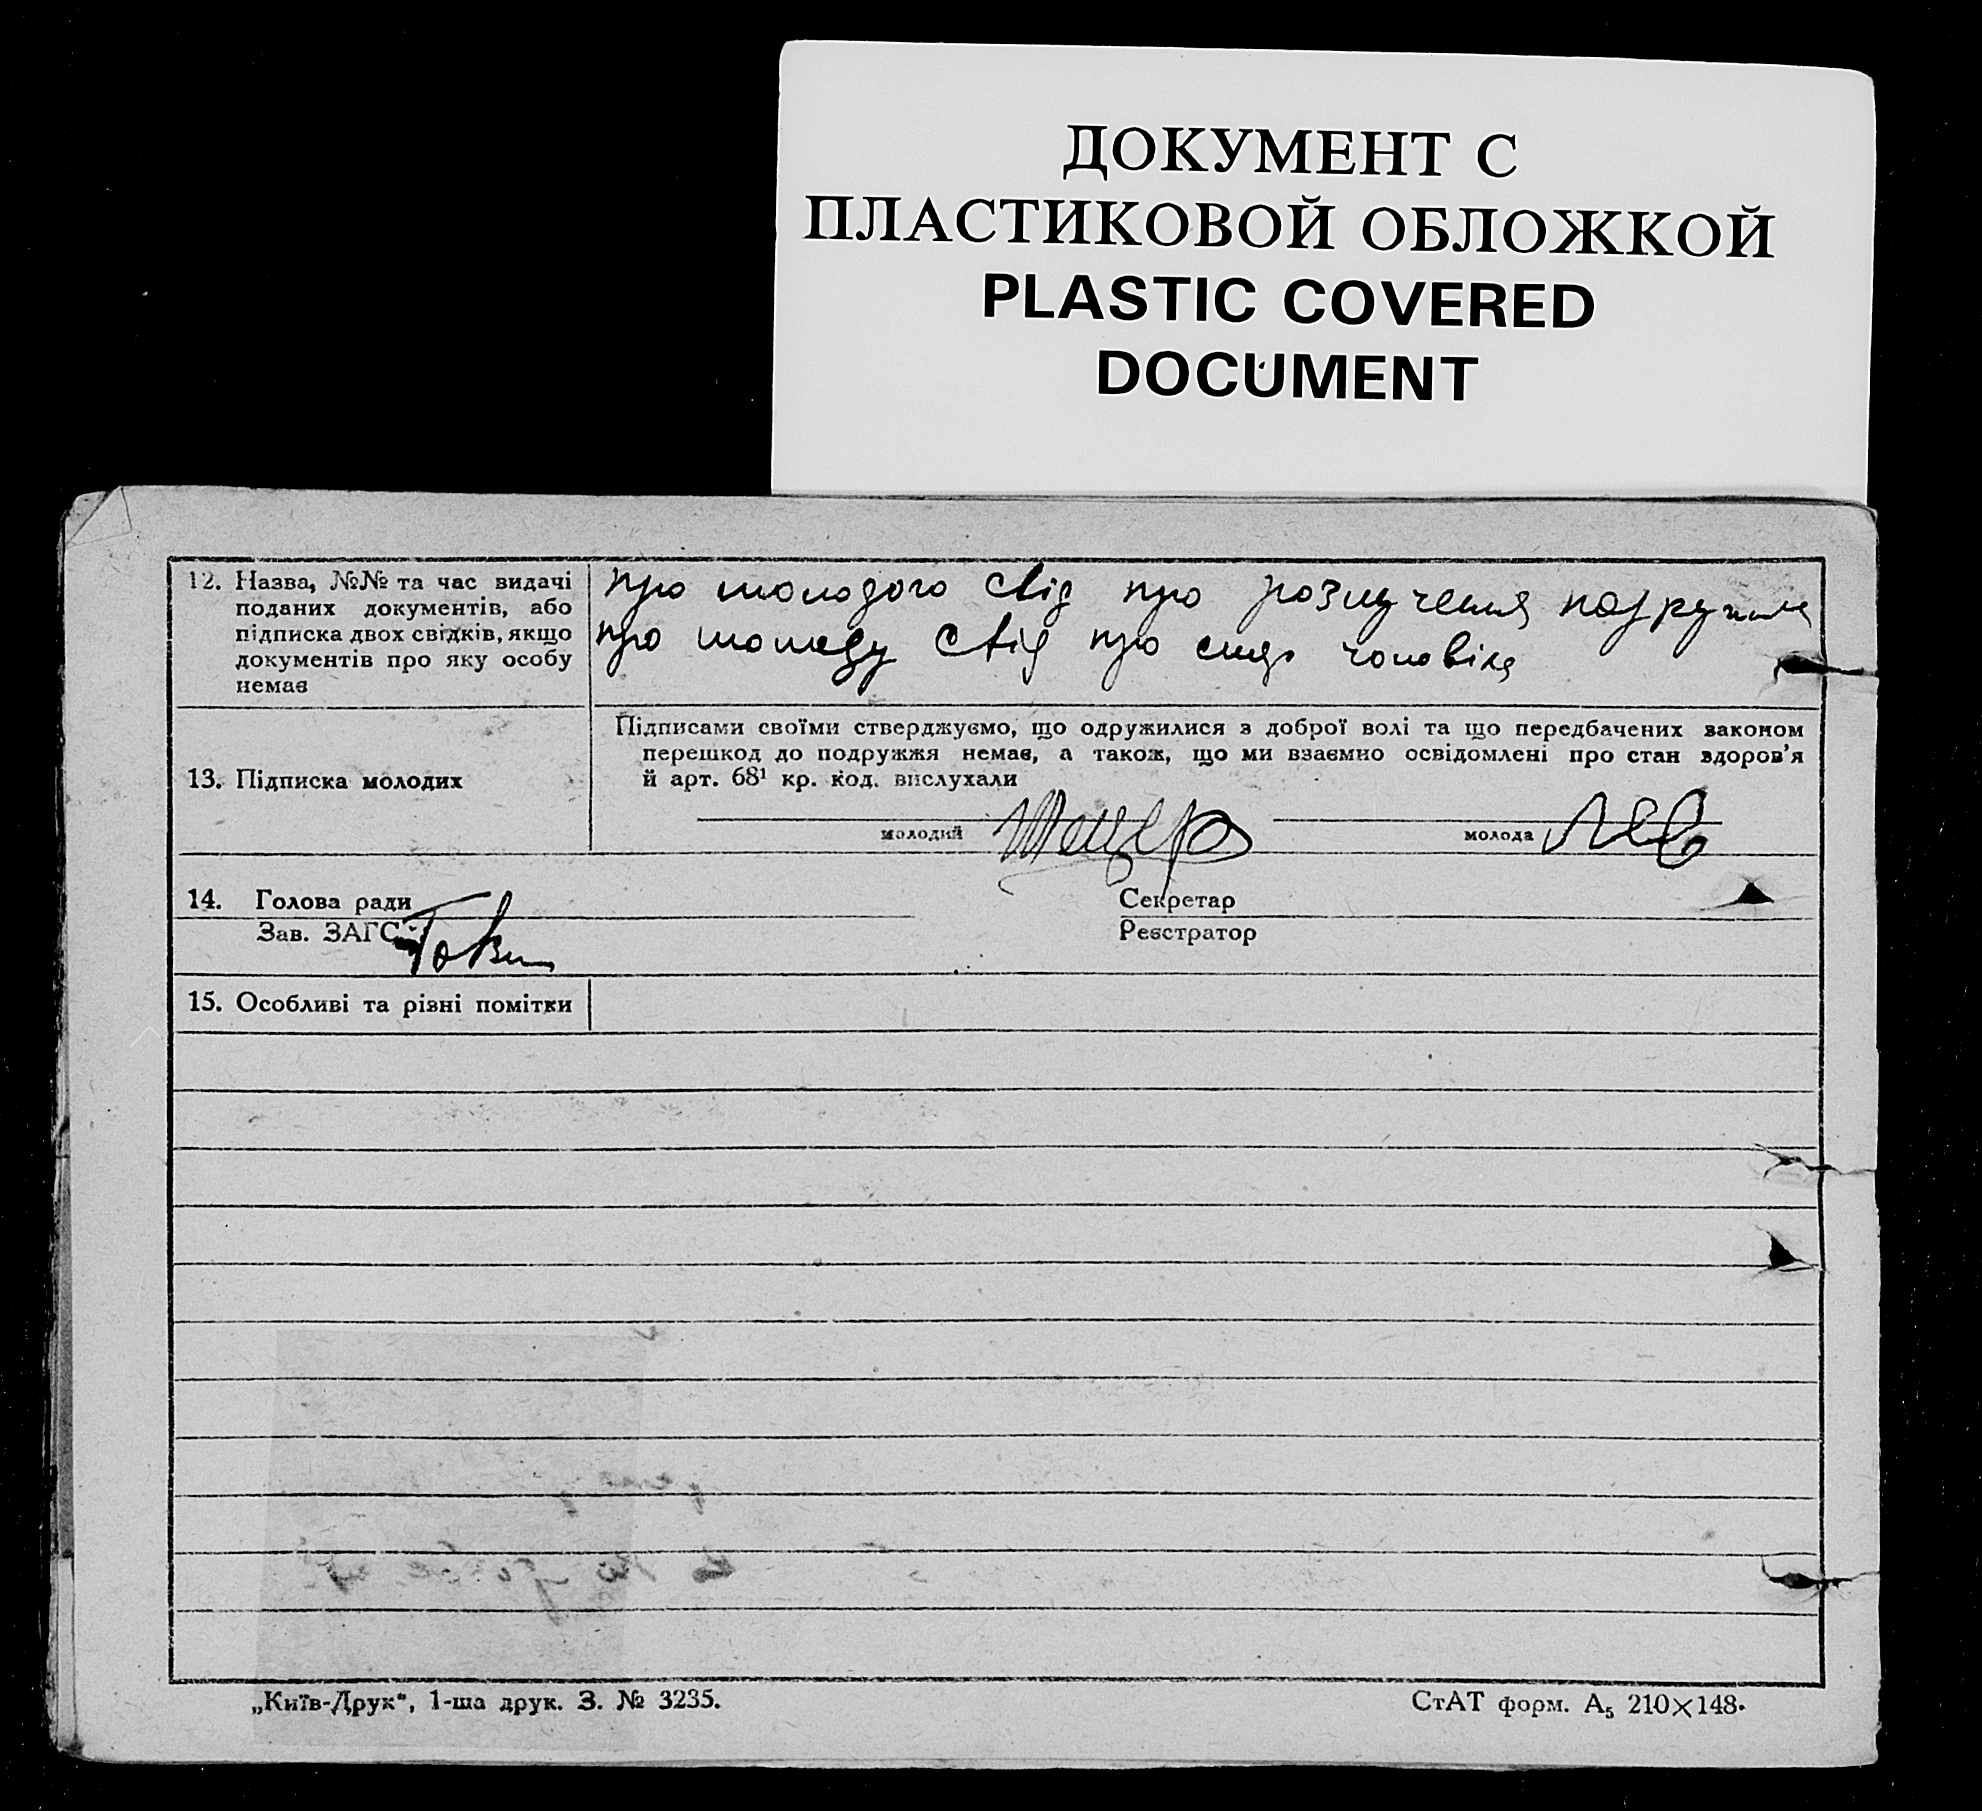 ДОКУМЕНТ С
ПЛАСТИКОВОЙ ОБЛОЖКОЙ
PLASTIC COVERED
DOCUMENT
12. Назва, №№ та час видачі
поданих документів, або
підписка двох свідків, якщо
документів про яку особу
немає
про молодого свід про розлучення
про молоду свід про чоловіка
13. Підписка молодих
Підписами своїми стверджуємо, що одружилися з доброї волі та що передбачених законом
перешкод до подружжя немає, а також, що ми взаємно освідомлені про стан здоров’я
й арт. 68¹ кр. код. вислухали
молодий
молода
14. Голова ради
Секретар
Зав. ЗАГС
Реєстратор
15. Особливі та різні помітки
„Київ-Друк“, 1-ша друк. З. № 3235.
СтАТ форм. А₅ 210×148.